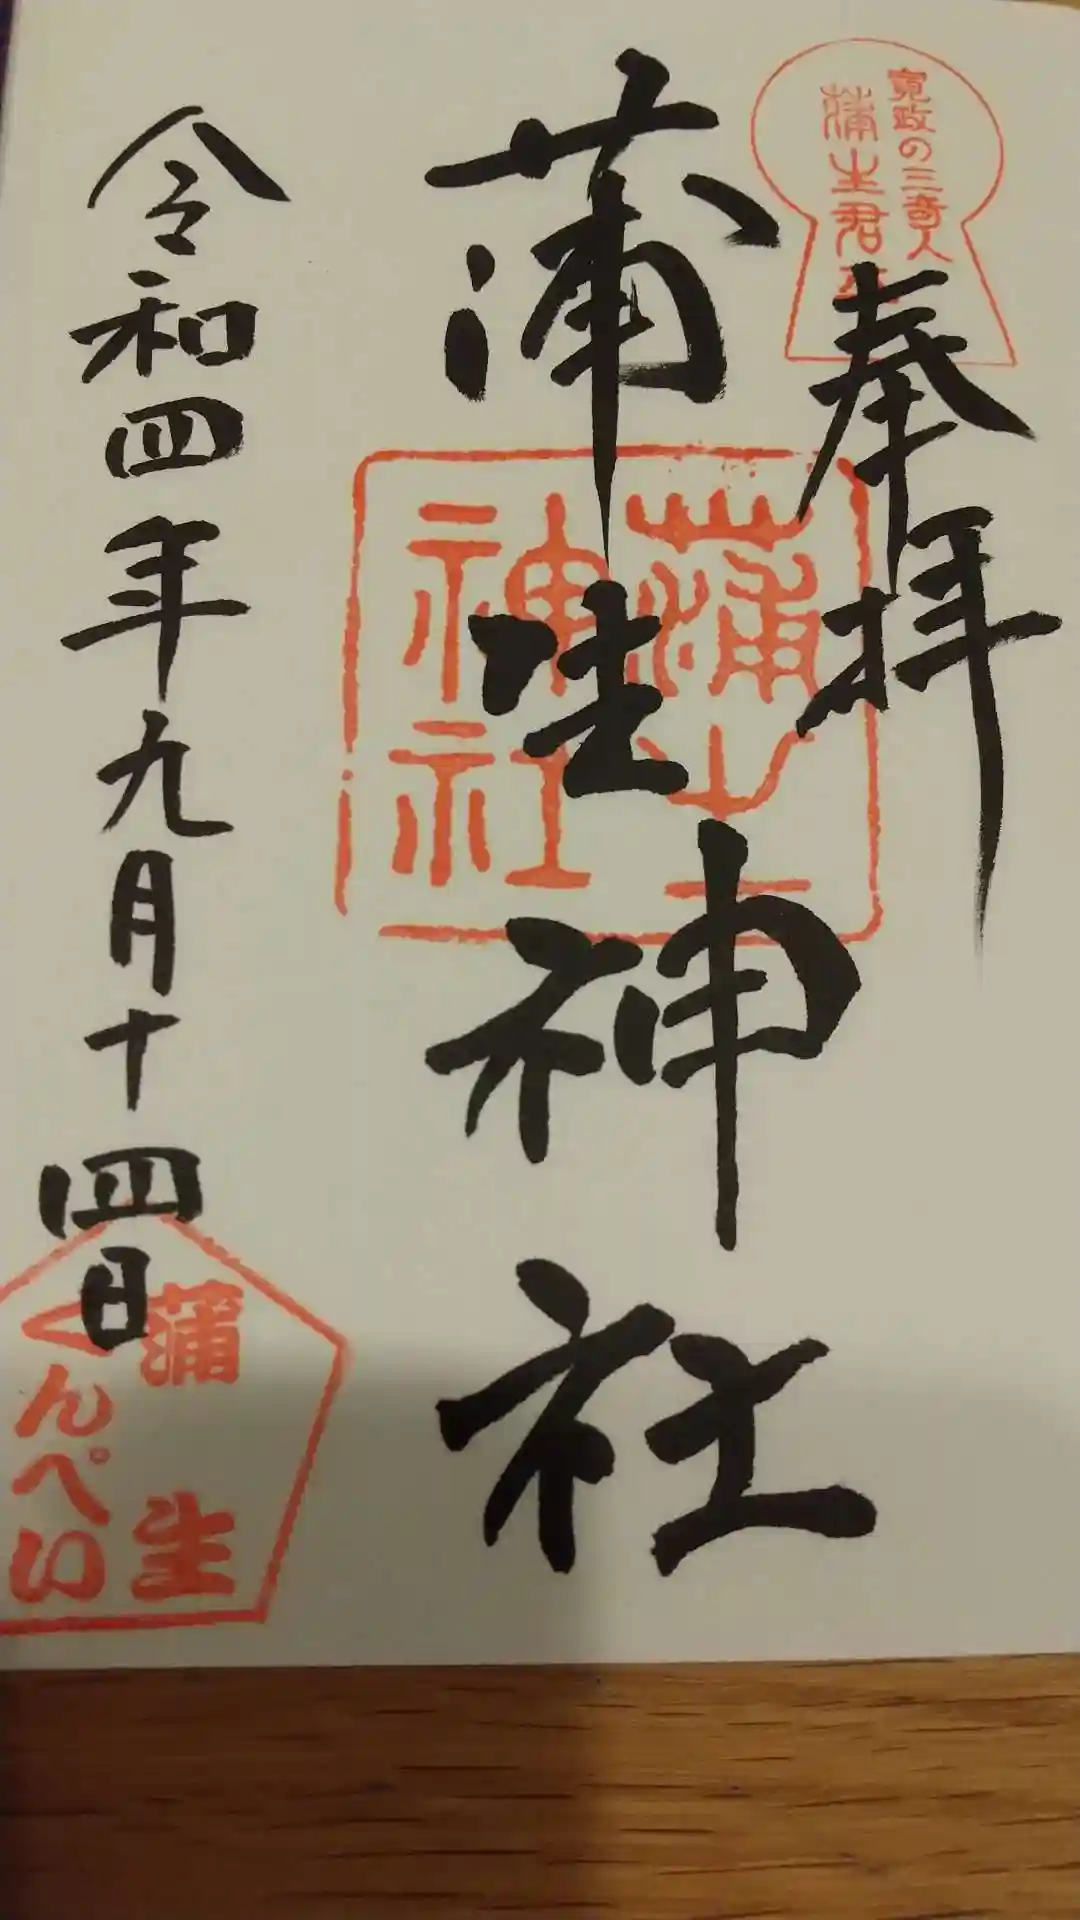 寛政の三奇人
蒲生君平
奉拝
蒲生神社
蒲生
神社
令和四年九月十四日
蒲生
くんぺい